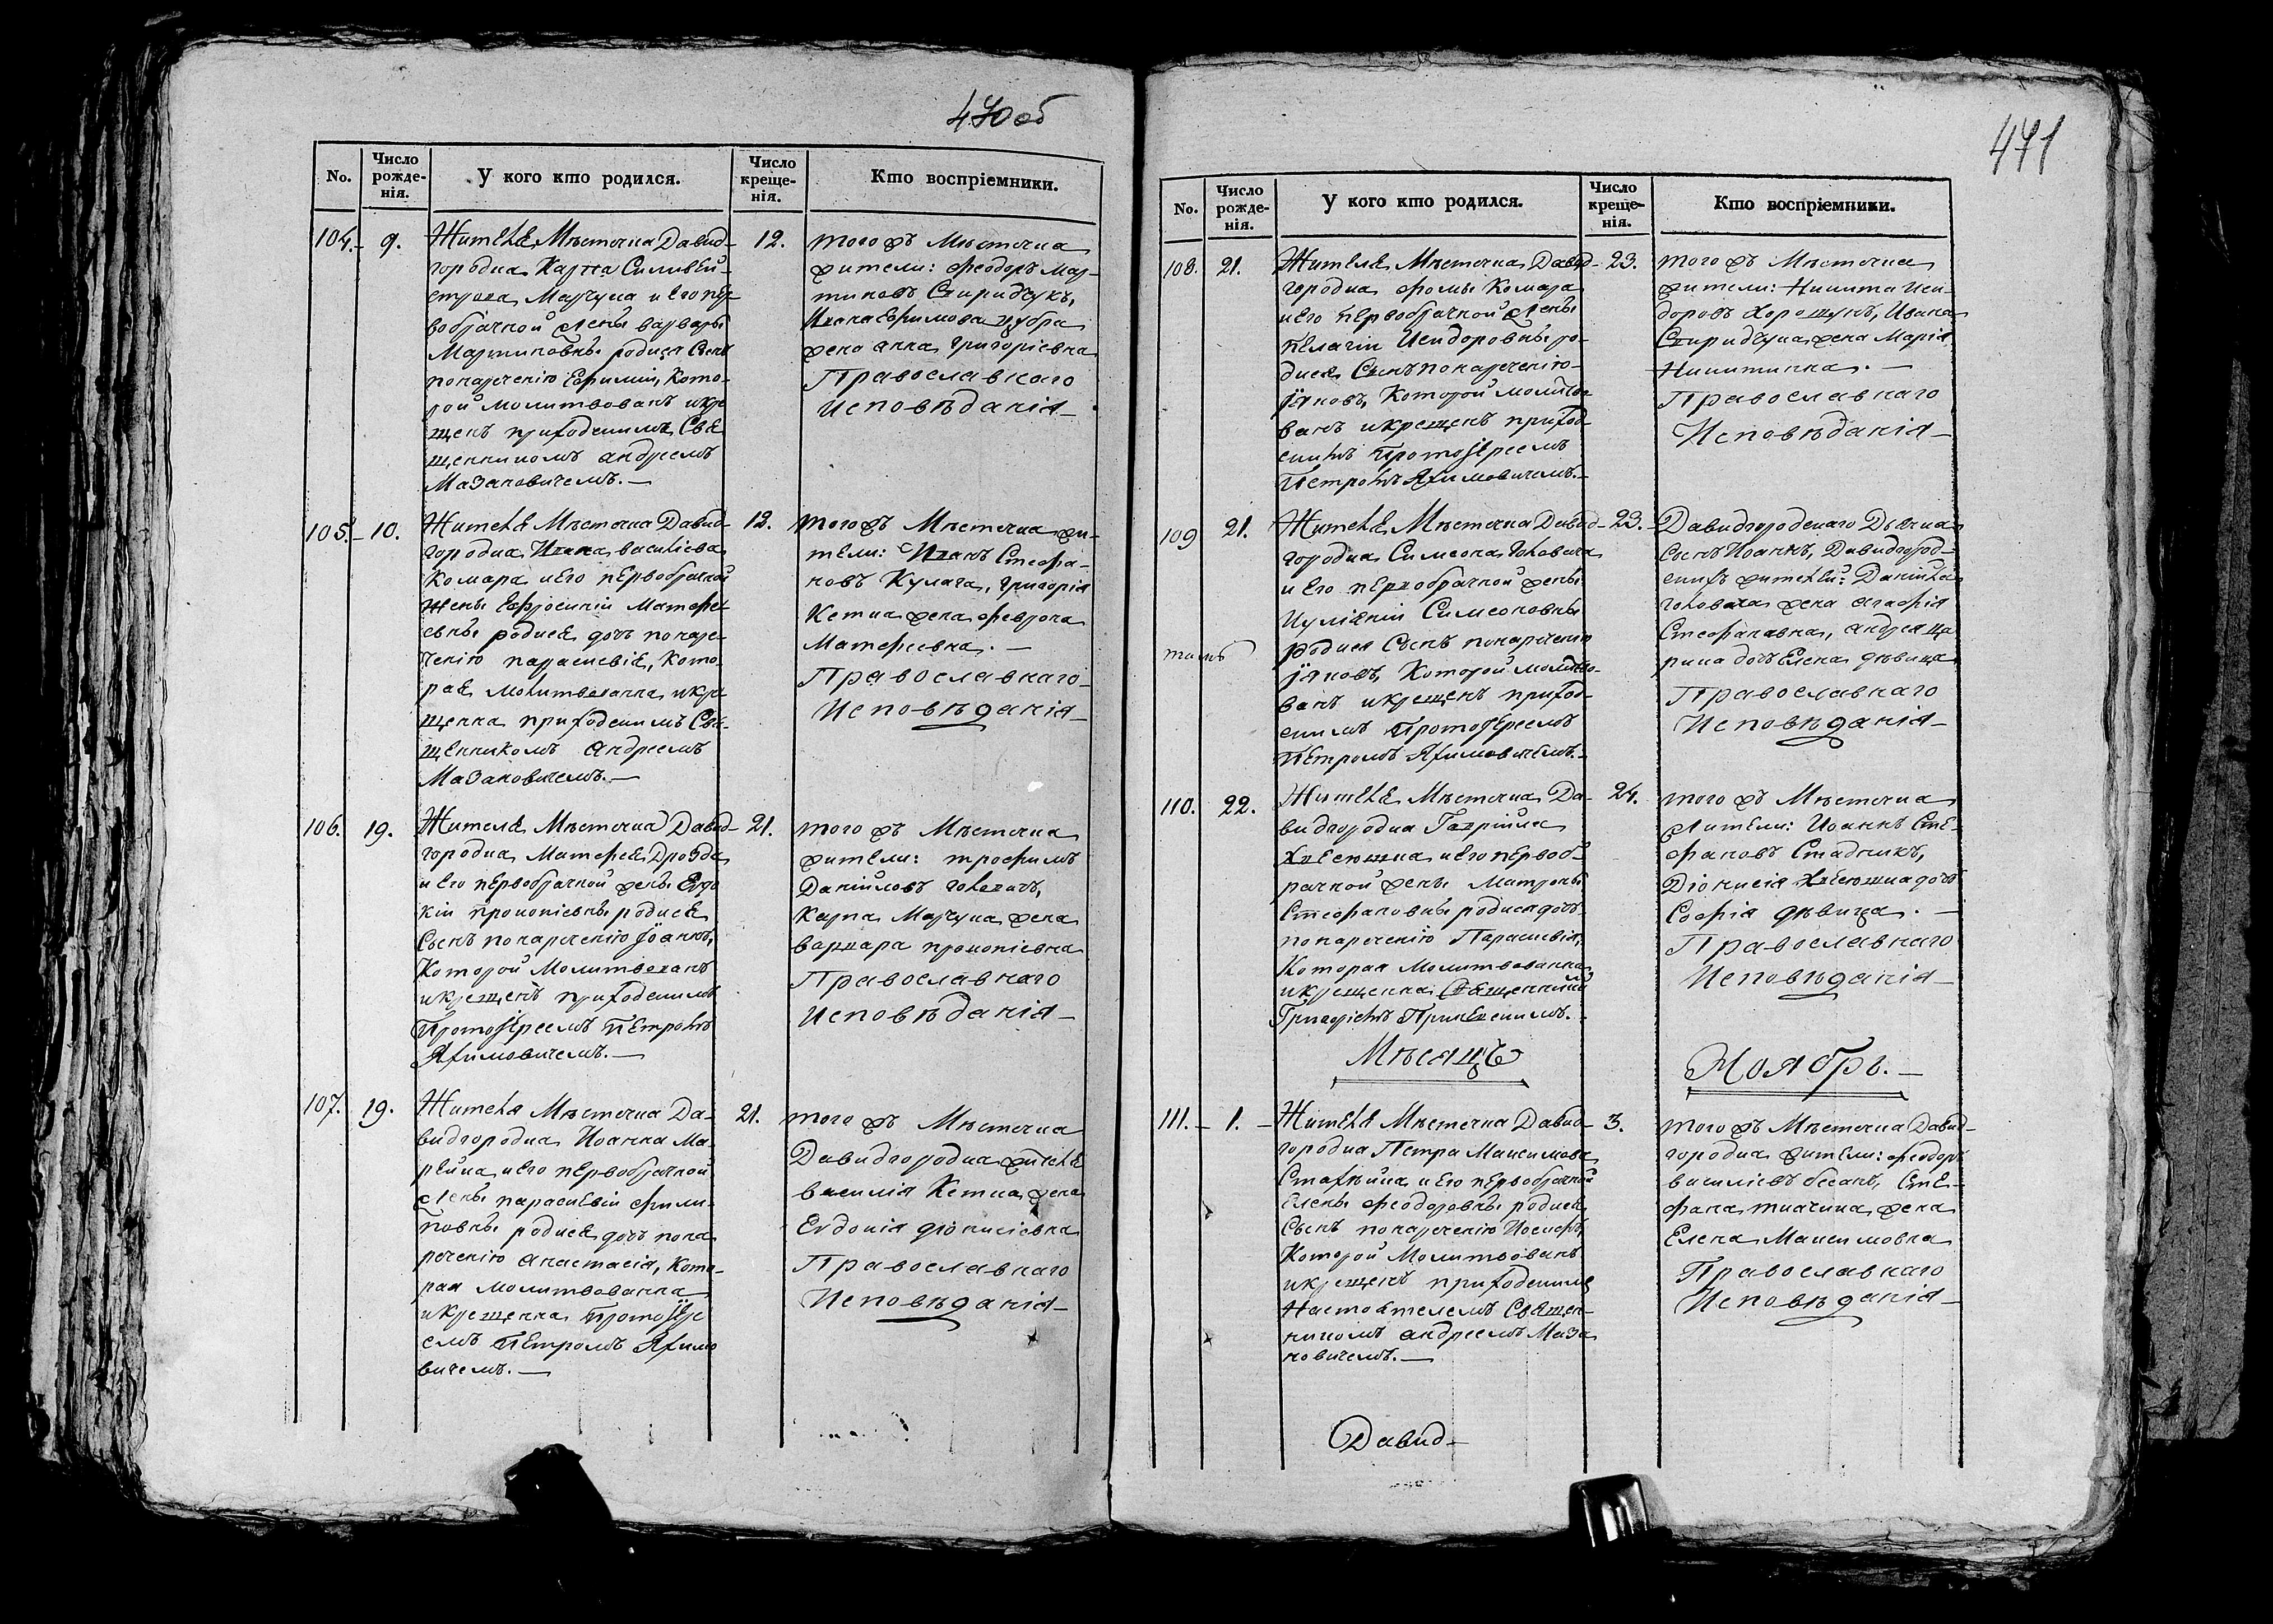 470 об
No.
Число рожде-нія.
У кого кто родился.
Число креще-нія.
Кто воспріемники.
104.
9.
Жителя Мѣстечка Давид-
городка Карпа Сильвей-
строва Марчука и его пер
вобрачной жены варвары
Мартиновны родися Сынъ
понаречению Ефимий, Кото-
рой молитвованъ и кре
щенъ приходскимъ Свя
щенникомъ андреемъ
Мазановичемъ.
12.
того жъ Мѣстечка
жители: феодоръ Мар-
тиновъ Спиридчукъ,
Ивана Ефимова
жена анна Григоріевна
Православнаго
исповѣданія
105.
10.
Жителя Мѣстечка Давид-
городка Ивана василіева
Комара и его первобрачной
жены Ефросиніи Матфе-
евны родися дочъ понаре-
чению параскевія, Кото-
рая молитвованна и кре
щенна приходскимъ Свя-
щенникомъ андреемъ
Мазановичемъ.
12.
того жъ Мѣстечка жи-
тели: Иванъ Стефа-
новъ Кулага, григорія
Кетка жена феврона
Матфеевна.
Православнаго
Исповѣданія
106.
19.
Жителя Мѣстечка Давид-
городка Матфея Дрозда
и его первобрачной жены Евдо
кіи прокопіевны родися
Сынъ понаречению Іоаннъ,
Которой Молитвованъ
и крещенъ приходскимъ
Протоіереемъ Петромъ
Яхимовичемъ.
21.
того жъ Мѣстечка
жители: трофимъ
Даніиловъ головачъ,
Карпа Марчука жена
варвара прокопіевна
Православнаго
исповѣданія
107.
19.
Жителя Мѣстечка Да-
видгородка Иоанна Ма-
рейка и его первобрачной
жены параскевіи фили-
повны родися дочъ пона
речению анастасія, Кото-
рая молитвованна
и крещенна Протоіере
емъ Петромъ Яхимо
вичемъ.
21.
того жъ Мѣстечка
Давидгородка жителя
василія Кетка жена
Евдокія діонисіевна
Православнаго
Исповѣданія
471
No.
Число рожде-нія.
У кого кто родился.
Число креще-нія.
Кто воспріемники.
108.
21.
Жителя Мѣстечка Давид-
городка фомы Комара
и его первобрачной жены
пелагіи Исидоровны ро-
дися Сынъ понаречению
Іяковъ, Которой молитво
ванъ и крещенъ приход
скимъ Протоіереемъ
Петромъ Яхимовичемъ.
23.
того жъ Мѣстечка
жители: Никита Иси-
доровъ Хорощукъ, Ивана
Спиридчука жена Марія
Никитична.
Православнаго
Исповѣданія
109
21.
Жителя Мѣстечка Давид-
городка Симеона Головача
и его первобрачной жены
Иуліяніи Симеоновны
родися Сынъ понаречению
Іяковъ, Которой молитво-
ванъ и крещенъ приход-
скимъ Протоіереемъ
Петромъ Яхимовичемъ.
23.
Давидгородскаго Дьячка
Сынъ Иоаннъ, Давидгород-
скихъ жителей: Даніила
головача жена агафія
Стефановна, андрея ца
рика дочъ Елена девица
Православнаго
Исповѣданія
110.
22.
Жителя Мѣстечка Да-
видгородка Гавріила
и его первоб-
рачной жены Матроны
Стефановны родися дочъ
понаречению Параскевія,
Которая Молитвованна
и крещенна Священникомъ
Григоріемъ
24.
того жъ Мѣстечка
Жители: Иоаннъ Сте-
фановъ Стадникъ,
Діонисія дочъ
Софія девица.
Православнаго
Исповѣданія
Мѣсяцъ
Ноябрь.
111.
1.
Жителя Мѣстечка Давид-
городка Петра Максимова
Стахѣйка и его первобрачной
Елены феодоровны родися
Сынъ понаречению Иосифъ,
Которой Молитвованъ
и крещенъ приходскимъ
Настоятелемъ Священ-
никомъ андреемъ Маза
новичемъ.
3.
того жъ Мѣстечка Давид-
городка жители: феодоръ
василіевъ Сте-
фана ткачика жена
Елена Максимовна
Православнаго
Исповѣданія
Давид-